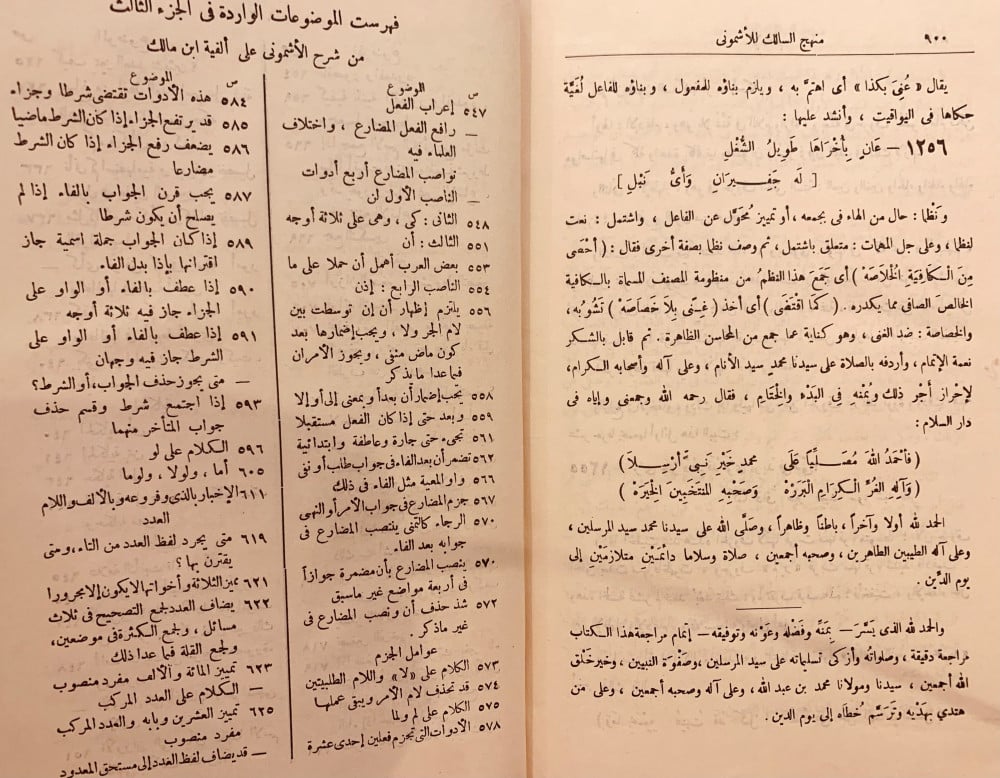 ٩٠٠ منهج السالك للأشمونى
يقال « عُنِىَ بكذا » أى اهتمَّ به ، ويلزم بناؤه للمفعول ، وبناؤه للفاعل لُغَيَّة
حكاها فى اليواقيت ، وأنشد عليها :
١٢٥٦ — عَانٍ بِأُخْرَاهَا طَوِيلُ الشُّغْلِ
[ لَه جَفِيرَانِ وَأَىُّ نَبْلِ ]
وَنَظْما : حال من الهاء فى بجمعه ، أو تمييز مُحَوَّل عن الفاعل ، واشتمل : نعت
لنظما ، وعلى جل المهمات : متعلق باشتمل ، ثم وصف نظما بصفة أخرى فقال : ( أَحْصَى
مِنَ الْكَافِيَةِ الْخُلَاصَهْ ) أى جَمَعَ هذا النظمُ من منظومة المصنف المسماة بالكافية
الخالصَ الصافى مما يكدره . ( كَمَا اقْتَضَى ) أى أخذ ( غِنًى بِلاَ خَصَاصَهْ ) تَشُوبُه ،
والخصاصة : ضد الغنى ، وهو كناية عما جمع من المحاسن الظاهرة . ثم قابل بالشكر
نعمة الإتمام ، وأردفه بالصلاة على سيدنا محمد سيد الأنام ، وعلى آله وأصحابه الكرام ،
لإحْراز أجْر ذلك ويُمْنهِ فى البَدْء والْخِتَامِ ، فقال رحمه الله وجمعنى وإياه فى
دار السلام :
( فَأَحْمَدُ اللهَ مُصَلِّيًا عَلَى محمدٍ خَيْرِ نَبِىٍّ أُرْسِلاَ )
( وَآلِهِ الغُرِّ الْكِرَامِ البَرَرَهْ وَصَحْبِهِ الْمُنْتَخَبِينَ الْخِيَرَهْ )
الحمد لله أولا وآخراً ، باطناً وظاهراً ، وصَلَّى الله على سيدنا محمد سيد المرسلين ،
وعلى آله الطيبين الطاهرين ، وصحبه أجمعين ، صلاة وسلاما دائمَيْنِ متلازمَيْنِ إلى
يوم الدِّين .
والحمد لله الذى يَسَّرَ — بِمَنِّه وفَضْلِه وعَوْنه وتوفيقه — إتمام مراجعة هذا الكتاب
مراجعة دقيقة ، وصلواتُه وأزكى تسليماته على سيد المرسلين ، وصَفْوَة النبيين ، وخير خَلْق
الله أجمعين ، سيدنا ومولانا محمد بن عبد الله ، وعلى آله وصحبه أجمعين ، وعلى من
هتدي بهَدْيِه وتَرَسَّم خُطَاه إلى يوم الدين .
فهرست الموضوعات الواردة فى الجزء الثالث
من شرح الأشمونى على ألفية ابن مالك
ص الموضوع
٥٤٧ إعراب الفعل
— رافع الفعل المضارع ، واختلاف
العلماء فيه
نواصب المضارع أربع أدوات
— الناصب الأول لن
٥٤٨ الثانى : كى ، وهى على ثلاثة أوجه
٥٥١ الثالث : أن
٥٥٣ بعض العرب أهمل أن حملا على ما
٥٥٤ الناصب الرابع : إذن
٥٥٦ يلتزم إظهار أن إن توسطت بين
لام الجر ولا ، ويجب إضمارها بعد
كون ماض منفى ، ويجوز الأمران
فيما عدا ما يذكر
٥٥٨ يجب إضمار أن بعد أو بمعنى إلى أو إلا
٥٥٩ وبعد حتى إذا كان الفعل مستقبلا
٥٦١ تجىء حتى جارة وعاطفة وابتدائية
٥٦٢ تضمر أن بعد الفاء فى جواب طلب أو نفى
٥٦٦ واو المعية مثل الفاء فى ذلك
٥٦٧ جزم المضارع فى جواب الأمر أو النهى
٥٧٠ الرجاء كالتمنى ينتصب المضارع فى
جوابه بعد الفاء
٥٧٠ ينصب المضارع بأن مضمرة جوازاً
فى أربعة مواضع غير ماسبق
٥٧٢ شذ حذف أن ونصب المضارع فى
غير ماذكر .
عوامل الجزم
٥٧٣ الكلام على «لا» واللام الطلبيتين
٥٧٤ قد تحذف لام الأمر ويبقى عملها
٥٧٥ الكلام على لم ولما
٥٧٨ الأدوات التى تجزم فعلين إحدى عشرة
ص الموضوع
٥٨٤ هذه الأدوات تقتضى شرطا وجزاء
٥٨٥ قد يرتفع الجزاء إذا كان الشرط ماضيا
٥٨٦ يضعف رفع الجزاء إذا كان الشرط
مضارعا
٥٨٧ يجب قرن الجواب بالفاء إذا لم
يصلح أن يكون شرطا
٥٨٩ إذا كان الجواب جملة اسمية جاز
اقترانها بإذا بدل الفاء
٥٩٠ إذا عطف بالفاء أو الواو على
الجزاء جاز فيه ثلاثة أوجه
٥٩١ إذا عطف بالفاء أو الواو على
الشرط جاز فيه وجهان
— متى يجوز حذف الجواب ، أو الشرط؟
٥٩٣ إذا اجتمع شرط وقسم حذف
جواب المتأخر منهما
٥٩٦ الكلام على لو
٦٠٥ أما ، ولولا ، ولوما
٦١١ الإخبار بالذى وفروعه وبالألف واللام
العدد
٦١٩ متى يجرد لفظ العدد من التاء ، ومتى
يقترن بها ؟
٦٢١ تمييز الثلاثة وأخواتها لا يكون إلا مجرورا
٦٢٢ يضاف العدد لجمع التصحيح فى ثلاث
مسائل ، ولجمع الكثرة فى موضعين ،
ولجمع القلة فيما عدا ذلك
٦٢٣ تمييز المائة والألف مفرد منصوب
— الكلام على العدد المركب
٦٢٥ تمييز العشرين وبابه والعدد المركب
مفرد منصوب
— قد يضاف لفظ العدد إلى مستحق المعدود